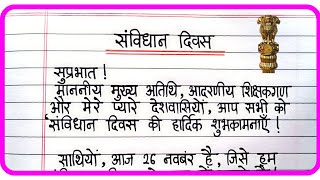 संविधान दिवस
सुप्रभात !
माननीय मुख्य अतिथि, आदरणीय शिक्षकगण
और मेरे प्यारे देशवासियों, आप सभी को
संविधान दिवस की हार्दिक शुभकामनाएँ !
साथियों, आज 26 नवंबर है, जिसे हम